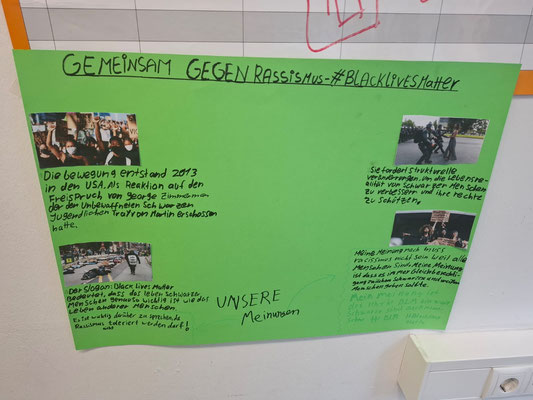 GEMEINSAM GEGEN RASSISMUS-#BLACKLIVESMatter
Die bewegung entstand 2013
in den USA. Als Reaktion auf den
Freispruch von George Zimmerman
der den Unbewaffneten Schwarzen
Jugendlichen Trayvon Martin erschossen
hatte.
Der Slogan: Black Lives Matter
Bedeutet, dass das leben Schwarzer
Menschen genauso wichtig ist wie das
Leben anderer Menschen.
Es ist wichtig darüber zu sprechen da
Rassismus nicht toleriert werden darf!
UNSERE
Meinungen
Sie fordert strukturelle
veränderungen. um die LEbensrea-
lität von Schwarzen Menschen
zu verbessern und ihre rechte
zu Schützen.
Meine Meinung nach muss
racissmus nicht sein weil alle
Menschen Sind. Meine Meinung
ist dass es immer Gleichberechti-
gung zwischen Schwarzen und weißen
Menschen geben sollte.